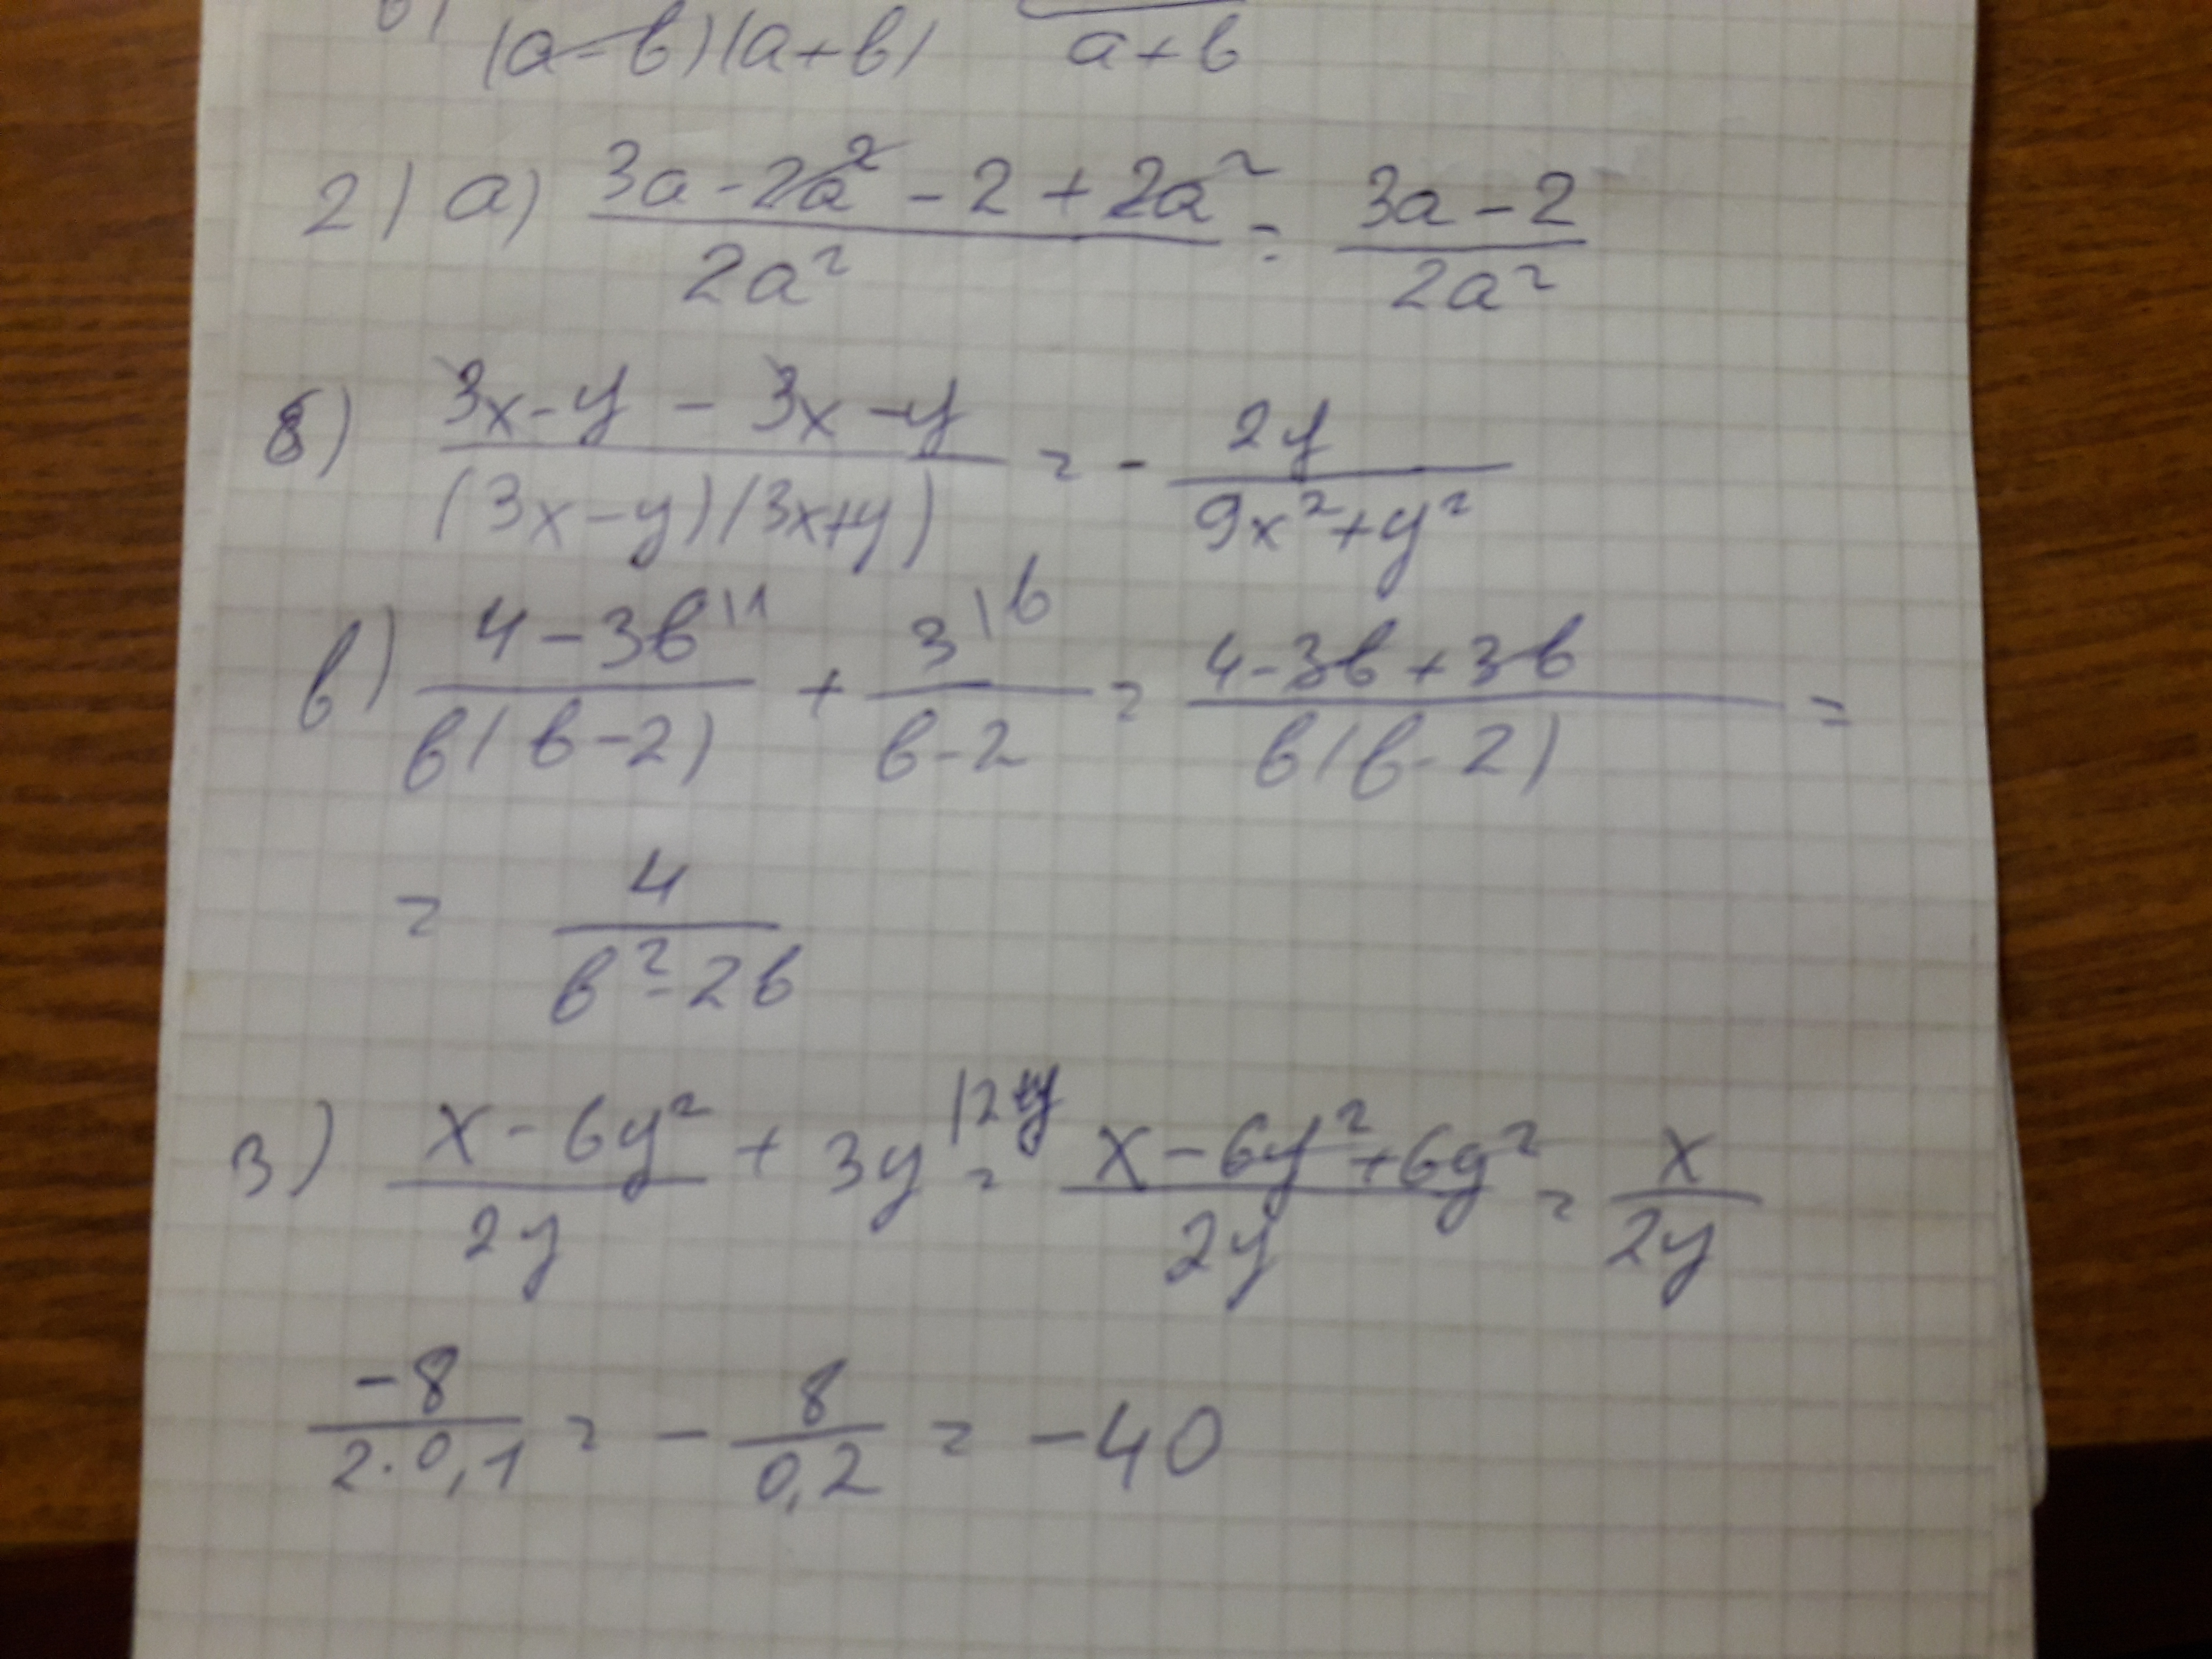 (a-b)(a+b) a+b
2) a) (3a-2a²-2+2a²)/(2a²) = (3a-2)/(2a²)
б) (3x-y-3x-y)/((3x-y)(3x+y)) = -(2y)/(9x²+y²)
в) (4-3b\1)/(b(b-2)) + (3\b)/(b-2) = (4-3b+3b)/(b(b-2)) =
= 4/(b²-2b)
3) (x-6y²)/(2y) + 3y\2y = (x-6y²+6y²)/(2y) = x/(2y)
(-8)/(2·0,1) = -8/(0,2) = -40